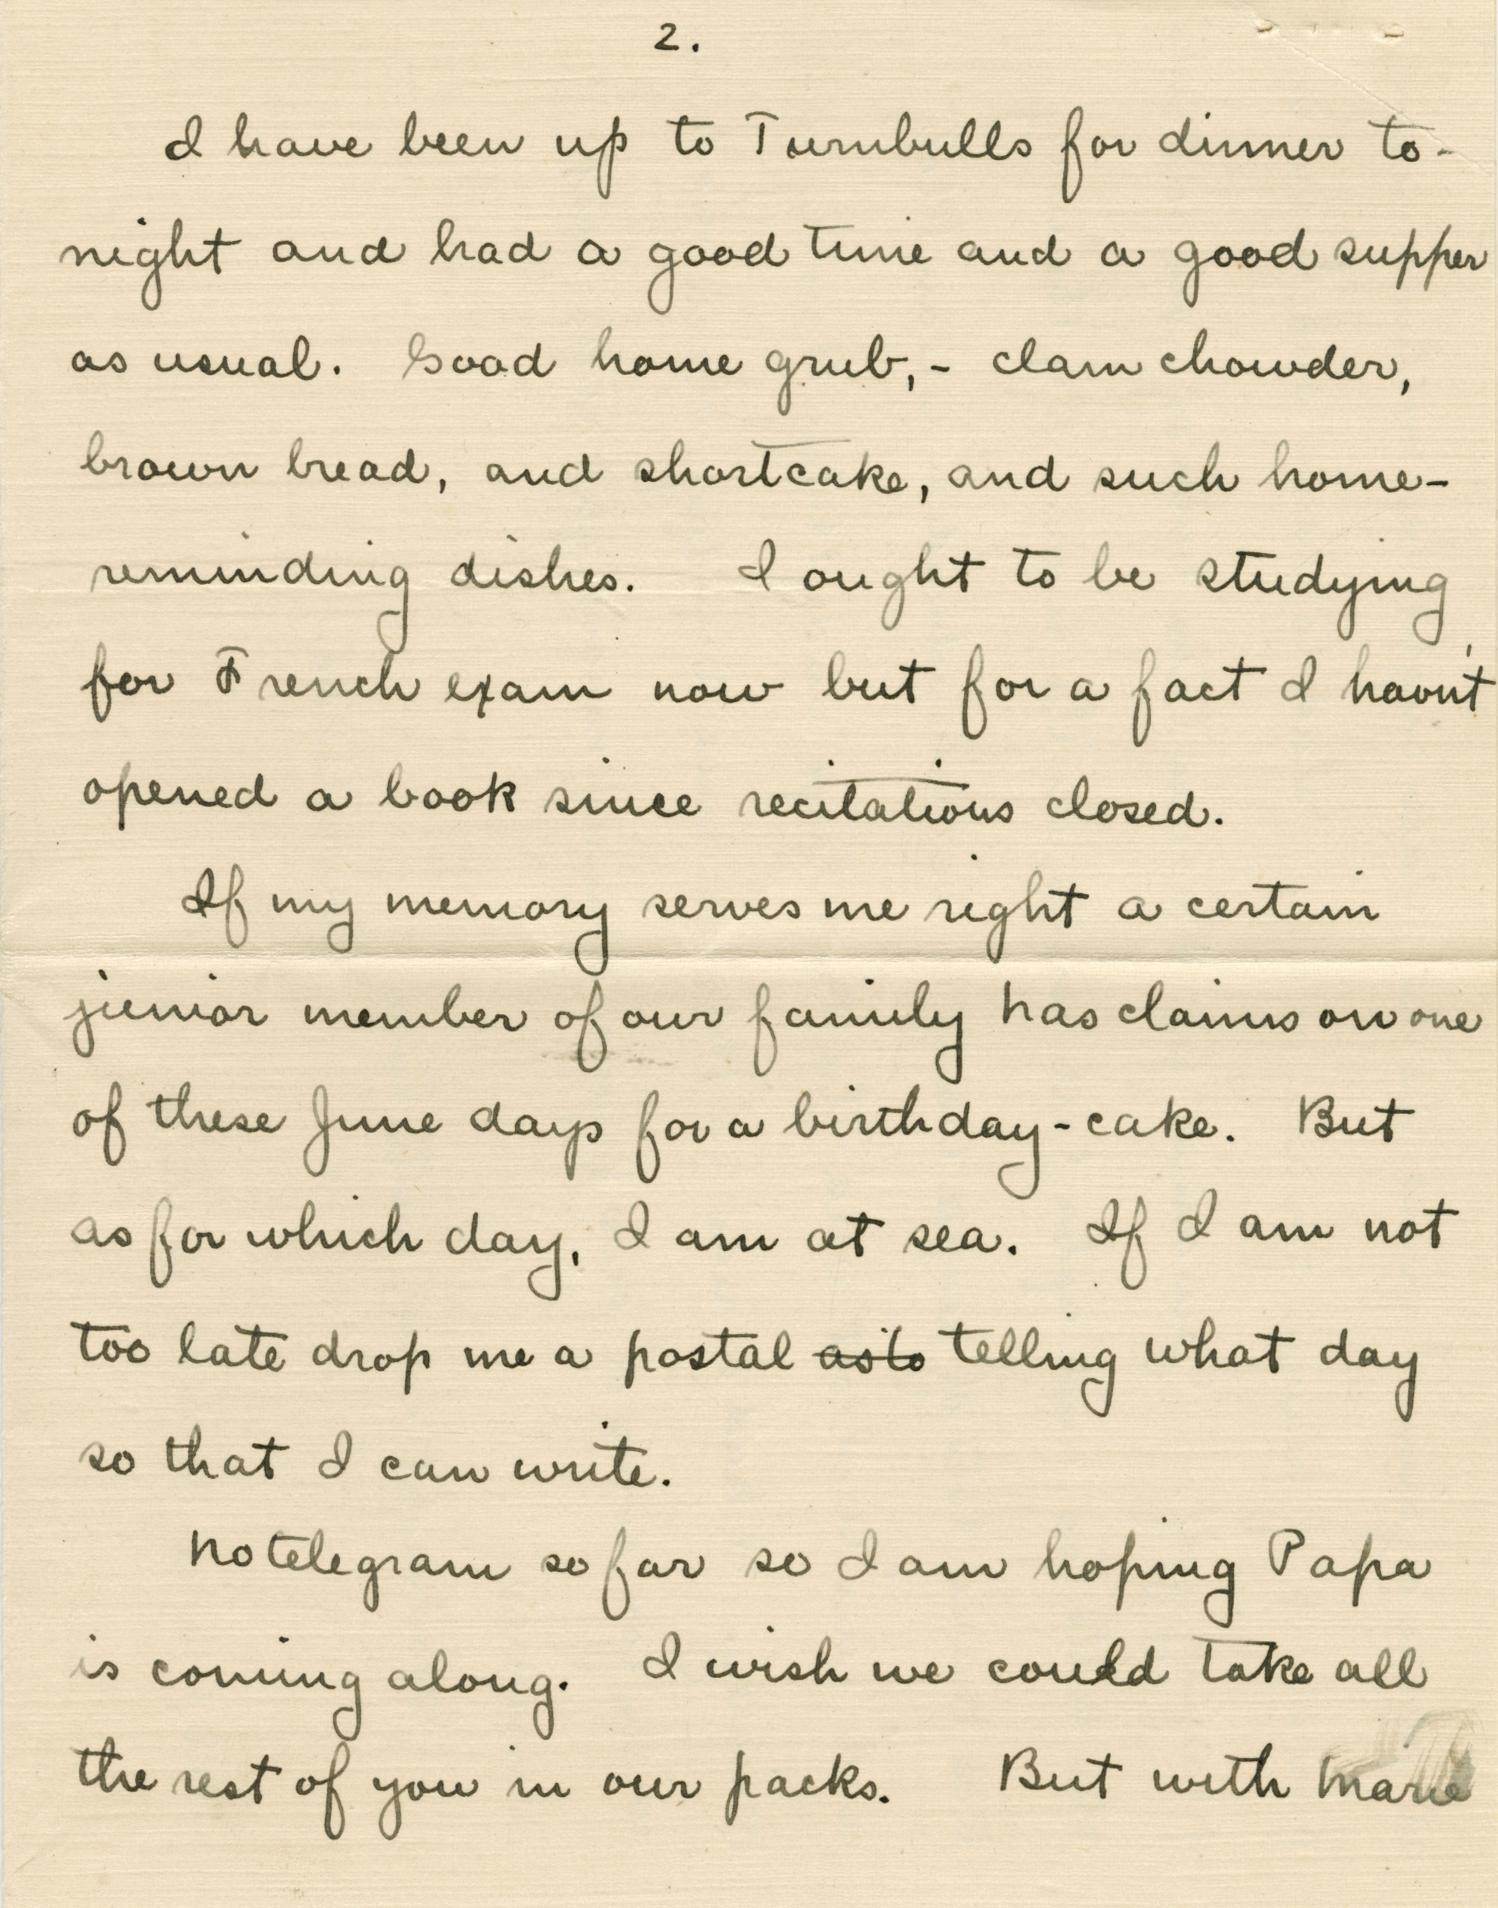 2.
I have been up to Turnbulls for dinner to-
night and had a good time and a good supper
as usual. Good home grub,- clam chowder,
brown bread, and shortcake, and such home-
reminding dishes. I ought to be studying
for French exam now but for a fact I havn't
opened a book since recitations closed.
If my memory serves me right a certain
junior member of our family has claims on one
of these June days for a birthday-cake. But
as for which day, I am at sea. If I am not
too late drop me a postal as to telling what day
so that I can write.
No telegram so far so I am hoping Papa
is coming along. I wish we could take all
the rest of you in our packs. But with Marie